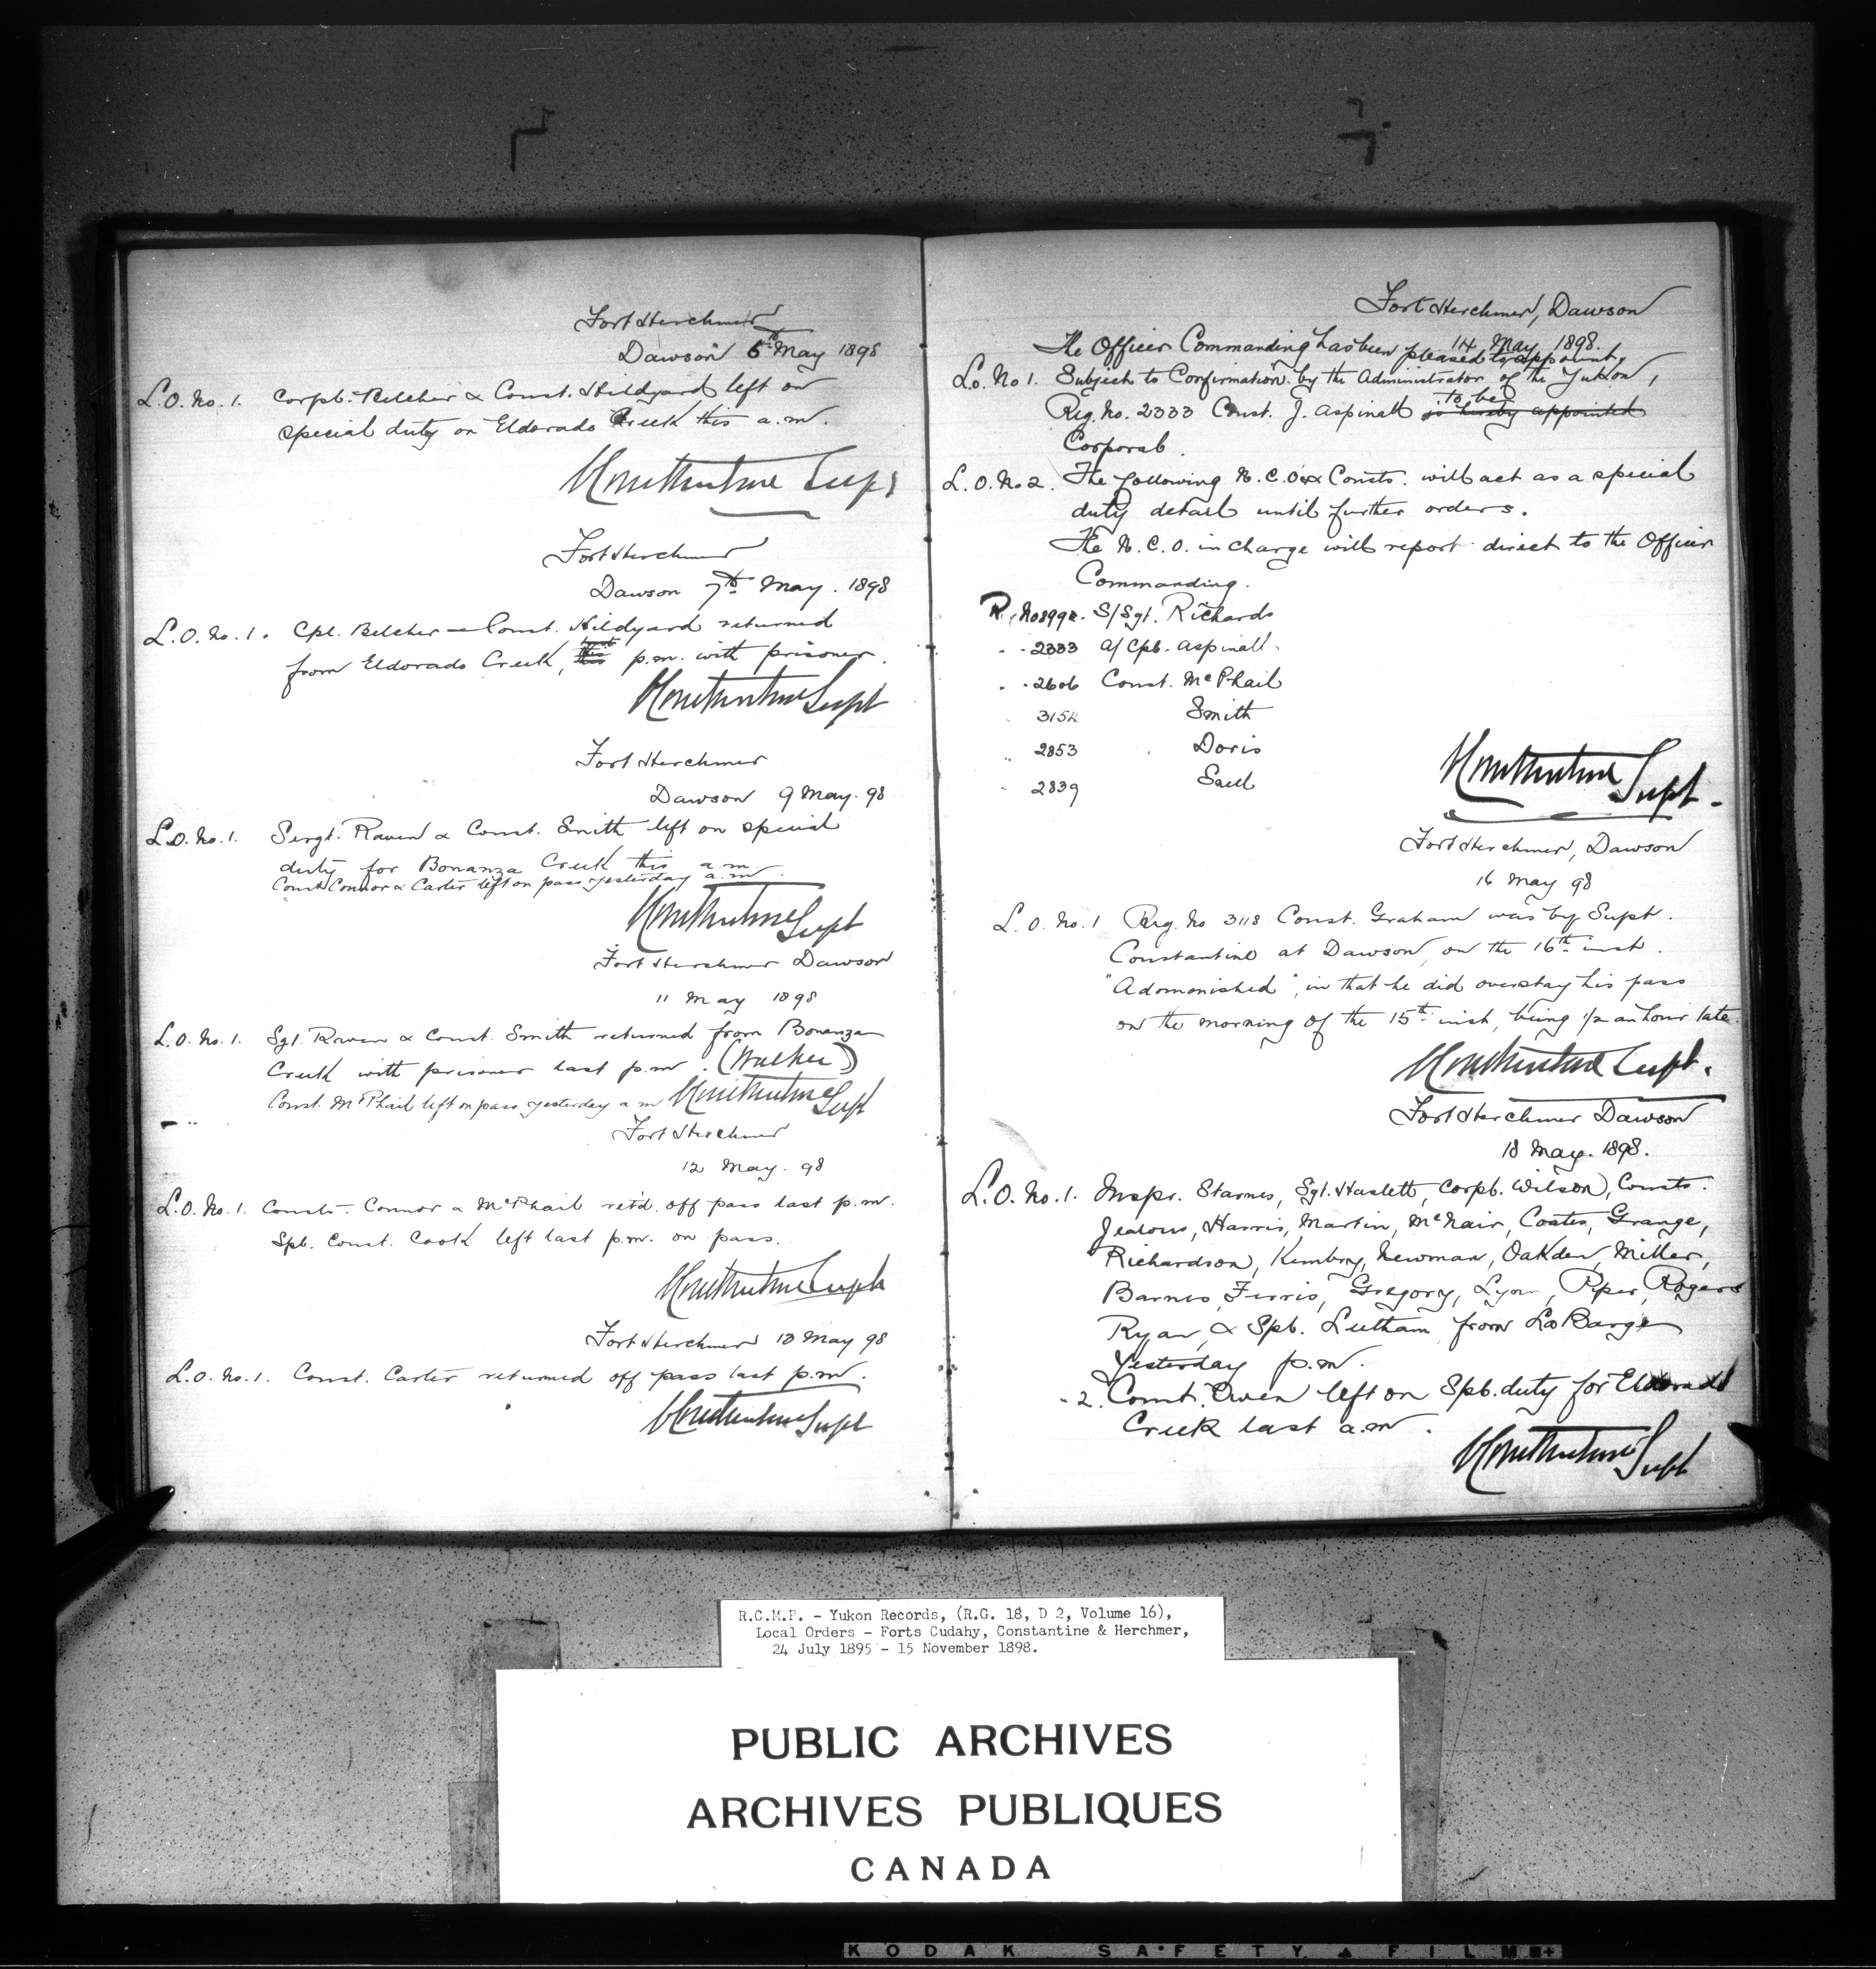 Fort Herchmer
Dawson 6th May 1898
L.O. No. 1. Corpl. Belcher & Const. Hildyard left on
special duty on Eldorado Creek this a.m.
Constantine Supt
Fort Herchmer
Dawson 7th May. 1898
L.O. No. 1. Cpl. Belcher Const. Hildyard returned
from Eldorado Creek, last p.m. with prisoner.
Constantine Supt
Fort Herchmer
Dawson 9 May. 98
L.O. No. 1. Sergt. Raven & Const. Smith left on special
duty for Bonanza Creek this a.m.
Const Connor & Carter left on pass yesterday a.m.
Constantine Supt
Fort Herchmer Dawson
11 May 1898
L.O. No. 1. Sgt. Raven & Const. Smith returned from Bonanza
Creek with prisoner last p.m. (Walker)
Const. McPhail left on pass yesterday a.m. Constantine Supt
Fort Herchmer
12 May. 98
L.O. No. 1. Consts. Connor & McPhail ret'd. off pass last p.m.
Spl. Const. Cook left last p.m. on pass.
Constantine Supt
Fort Herchmer 13 May 98
L.O. No. 1. Const. Carter returned off pass last p.m.
Constantine Supt
Fort Herchmer, Dawson
14 May 1898.
The Officer Commanding has been pleased to appoint,
L.O. No 1. Subject to Confirmation by the Administrator of the Yukon,
Reg. No. 2333 Const. J. Aspinall to be is hereby appointed
Corporal.
L.O. No 2. The following N.C.O's & Consts. will act as a special
duty detail until further orders.
The N.C.O. in charge will report direct to the Officer
Commanding.
R. No 899 S/Sgt. Richards
" " 2333 a/Cpl. Aspinall
" " 2606 Const. McPhail
" 3154 Smith
" 2853 " Doris
" 2839 Saul
Constantine Supt.
Fort Herchmer, Dawson
16 May 98
L.O. No. 1 Reg. No 3118 Const. Graham was by Supt.
Constantine at Dawson, on the 16th inst.
"Adomonished", in that he did overstay his pass
on the morning of the 15th inst, being 1/2 an hour late.
Constantine Supt.
Fort Herchmer Dawson
18 May. 1898.
L.O. No. 1. Inspr. Starnes, Sgt. Haslett, Corpl. Wilson, Consts.
Jealous, Harris, Martin, McNair, Coates, Grange,
Richardson, Kembry, Newman, Oakden, Miller,
Barnes, Ferris, Gregory, Lyon, Piper, Rogers
Ryan, & Spl. Leetham from La Barge
Yesterday p.m.
" 2. Const. Owen left on Spl. duty for Eldorado
Creek last a.m.
Constantine Supt
R.C.M.P. - Yukon Records, (R.G. 18, D 2, Volume 16),
Local Orders - Forts Cudahy, Constantine & Herchmer,
24 July 1895 - 15 November 1898.
PUBLIC ARCHIVES
ARCHIVES PUBLIQUES
CANADA
KODAK SAFETY FILM